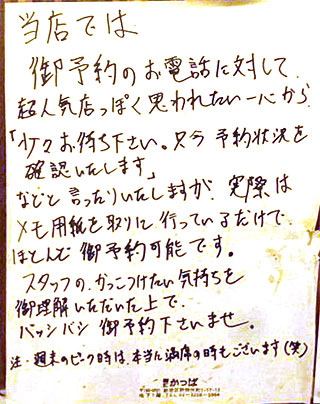 当店では
御予約のお電話に対して
超人気店っぽく思われたい一心から
「少々お待ち下さい。只今 予約状況を
確認いたします」
などと 言ったりいたしますが、実際は
メモ用紙を取りに 行っているだけで
ほとんど 御予約可能です。
スタッフの、かっこつけたい気持ちを
御理解いただいた上で、
バッシバシ 御予約下さいませ。
注・週末のピーク時は、本当に満席の時もございます(笑)
かっぱ